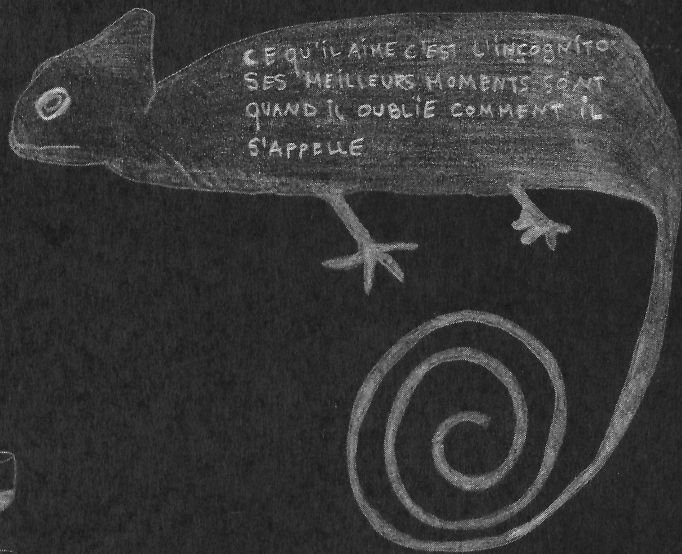 CE QU'IL AIME C'EST L'INCOGNITO
SES MEILLEURS MOMENTS SONT
QUAND IL OUBLIE COMMENT IL
S'APPELLE